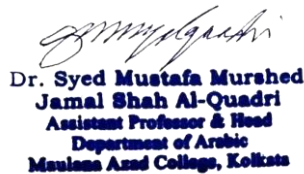 Dr. Syed Mustafa Murshed
Jamal Shah Al-Quadri
Assistant Professor & Head
Department of Arabic
Maulana Azad College, Kolkata